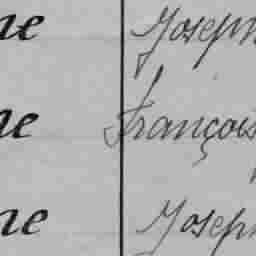 ne Joseph
ne François
ne Joseph